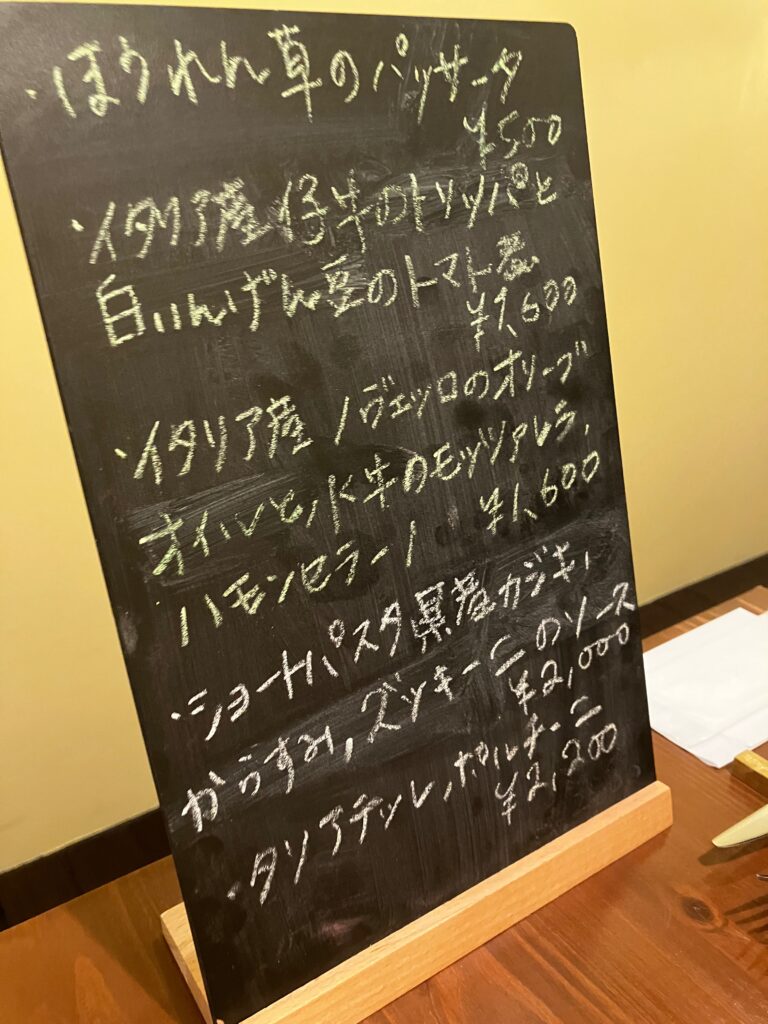 ・ほうれん草のパッサータ
¥500
・イタリア産仔牛のトリッパと
白いんげん豆のトマト煮
¥1,600
・イタリア産ノヴェッロのオリーブ
オイルと水牛のモッツァレラ、
ハモンセラーノ ¥1,600
・ショートパスタ県産カジキ、
からすみ、ズッキーニのソース
¥2,000
・タリアテッレ、ポルチーニ
¥2,200